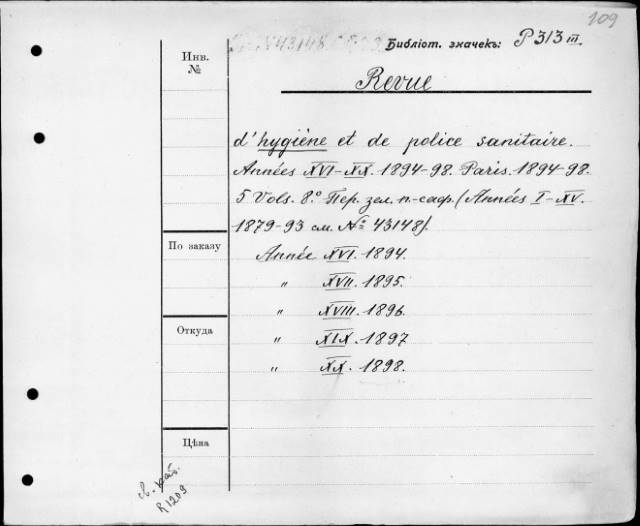 109
Библіот. значекъ: P 313 III.
Инв. №
Revue
d'hygiène et de police sanitaire.
Années XVI-XX. 1894-98. Paris. 1894-98.
5 Vols. 8.° Пер. зел. п.-саф. (Années I-XV.
1879-93 см. № 43148).
По заказу
Année XVI. 1894.
" XVII. 1895.
" XVIII. 1896.
Откуда
" XIX. 1897
" XX. 1898.
Цѣна
R 1209